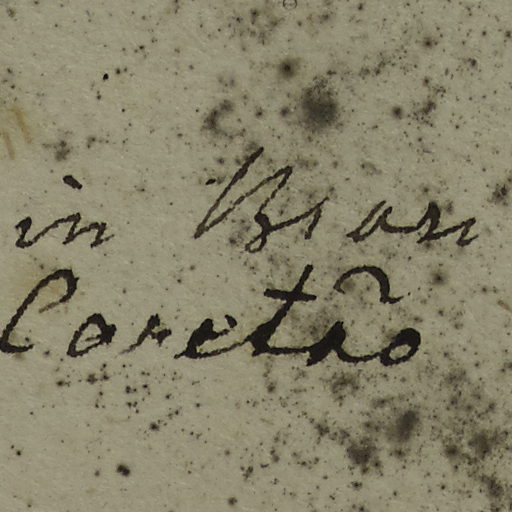 in Bras
Coretão